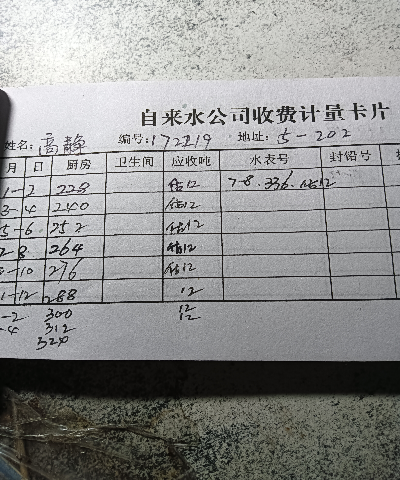 自来水公司收费计量卡片
姓名: 高静 编号: 172219 地址: 5-202
月 日 厨房 卫生间 应收吨 水表号 封铅号
1-2 228 估12 7-8.336.估12
3-4 240 估12
5-6 252 估12
7-8 264 估12
9-10 276 估12
11-12 288 12
1-2 300 12
3-4 312 12
324